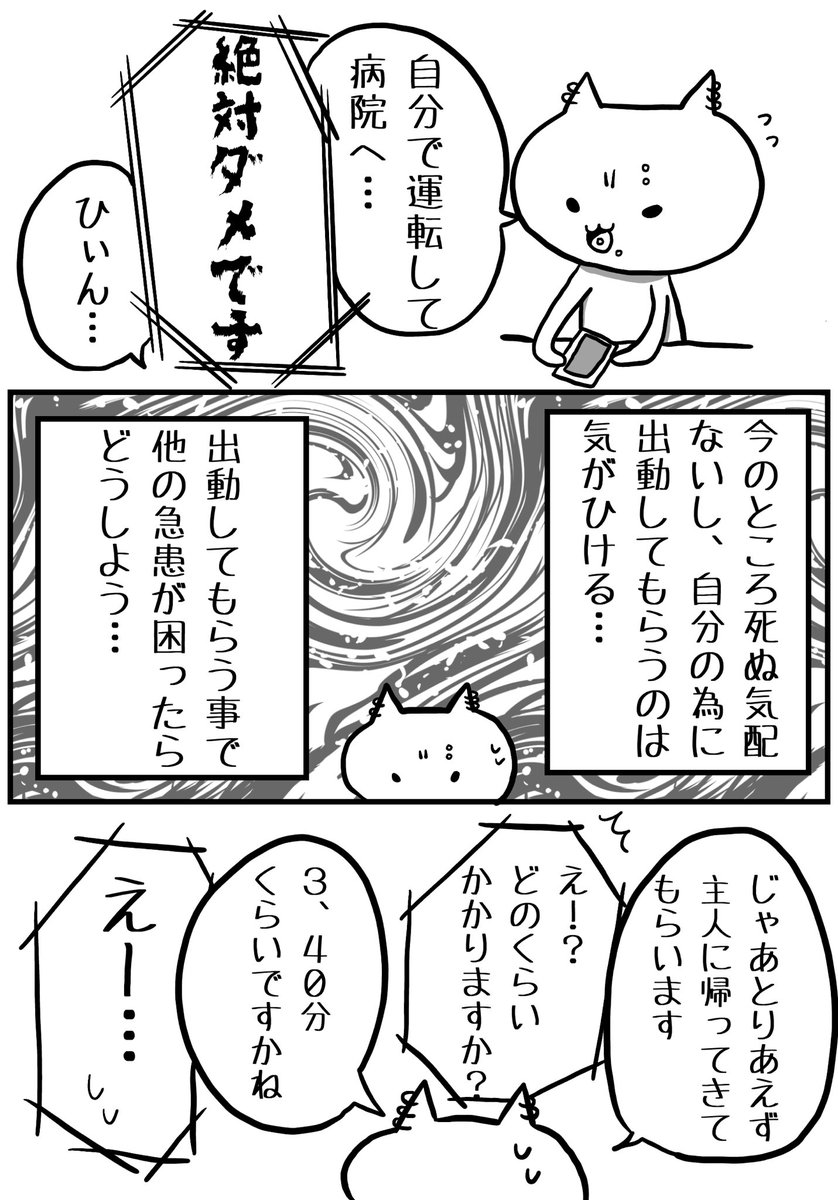 自分で運転して
病院へ…
絶対ダメです
ひぃん…
今のところ死ぬ気配
ないし、自分の為に
出動してもらうのは
気がひける…
出動してもらう事で
他の急患が困ったら
どうしよう…
じゃあとりあえず
主人に帰ってきて
もらいます
えー？
どのくらい
かかりますか？
３、４０分
くらいですかね
えー…